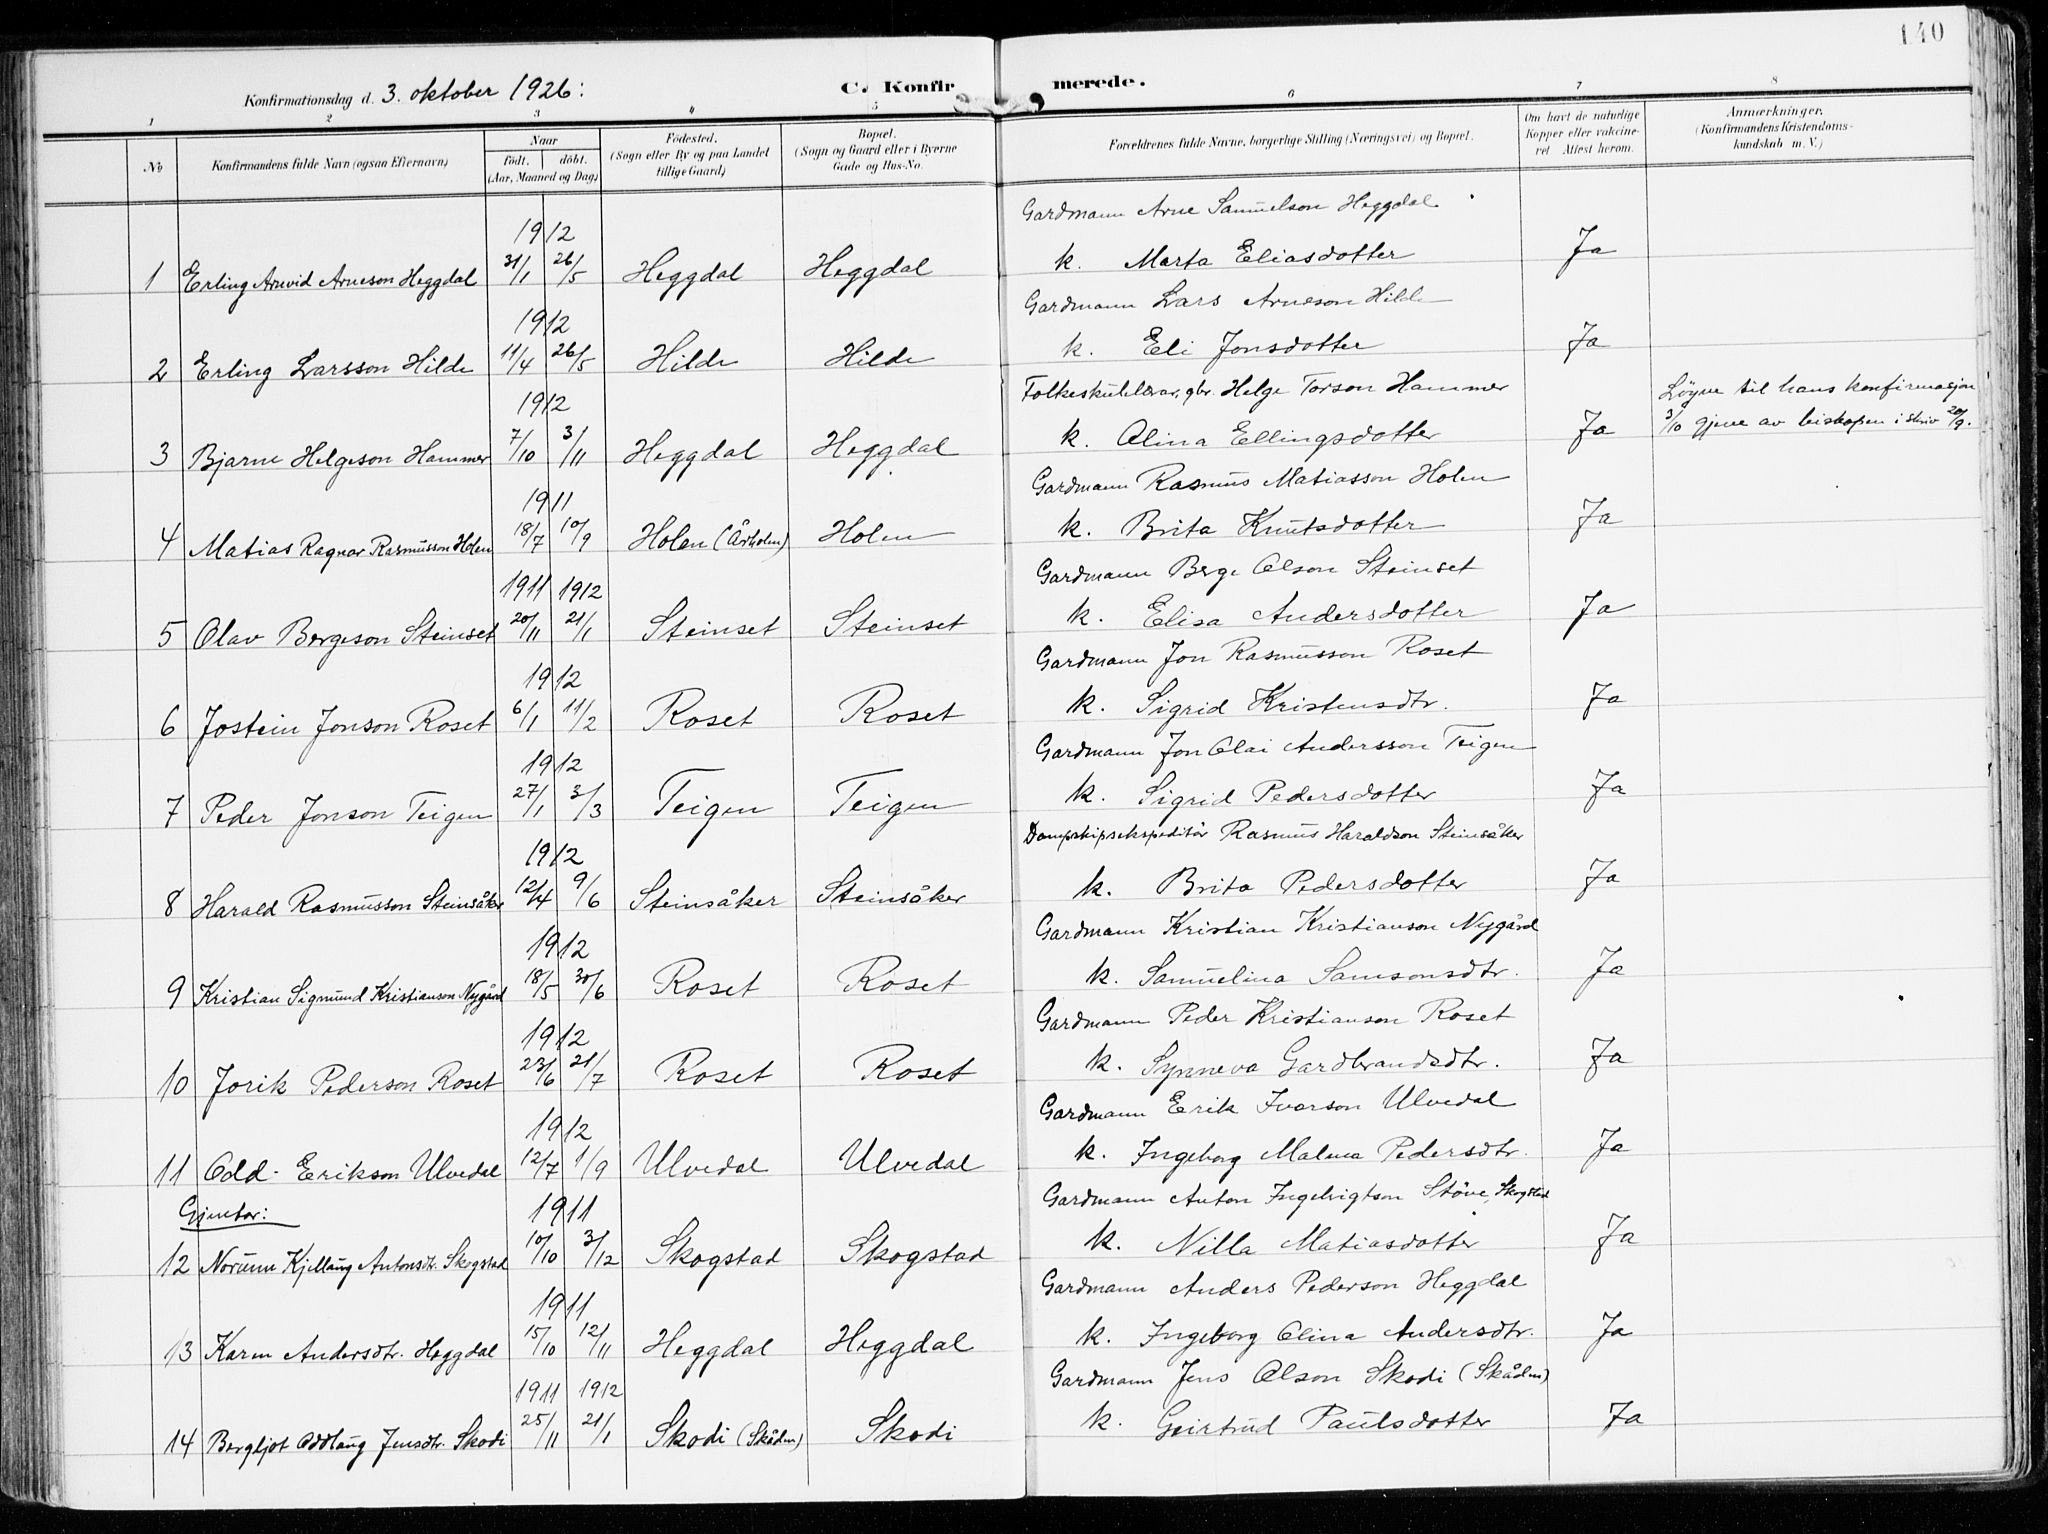 140
Konfirmationsdag d. 3. oktober 1926:
C. Konfirmerede.
1 2 3 4 5 6 7 8
No
Konfirmandens fulde Navn (ogsaa Efternavn)
Naar
födt. döbt.
(Aar, Maaned og Dag)
Födested.
(Sogn eller By og paa Landet
tillige Gaard)
Bopæl.
(Sogn og Gaard eller i Byerne
Gade og Hus-No.
Forældrenes fulde Navne, borgerlige Stilling (Næringsvei) og Bopæl.
Om havt de naturlige
Kopper eller vaccine-
ret Attest herom.
Anmærkninger.
(Konfirmandens Kristendoms-
kundskab m. V.)
Gardmann Arne Samuelson Heggdal
1912
1 Erling Arnvid Arneson Heggdal 31/1 26/5 Heggdal Heggdal k. Marta Eliasdotter Ja
Gardmann Lars Arneson Hilde
1912
2 Erling Larsson Hilde 11/4 26/5 Hilde Hilde k. Eli Jonsdotter Ja
Folkeskulelærar, gbr. Helge Torson Hammer Löyve til hans konfirmasjon
1912
3 Bjarne Helgeson Hammer 7/10 3/11 Heggdal Heggdal k. Olina Ellingsdotter Ja 3/10 gjeve av biskopen i skriv 20/9.
Gardmann Rasmus Matiasson Holen
1911
4 Matias Ragnar Rasmusson Holen 18/7 10/9 Holen (Årholen) Holen k. Brita Knutsdotter Ja
Gardmann Berge Olson Steinset
1911 1912
5 Olav Bergeson Steinset 20/11 21/1 Steinset Steinset k. Elisa Andersdotter Ja
Gardmann Jon Rasmusson Roset
1912
6 Jostein Jonson Roset 6/1 11/2 Roset Roset k. Sigrid Kristensdtr. Ja
Gardmann Jon Olai Andersson Teigen
1912
7 Peder Jonson Teigen 27/1 3/3 Teigen Teigen k. Sigrid Pedersdotter Ja
Dampskipsekspeditör Rasmus Haraldson Steinsåker
1912
8 Harald Rasmusson Steinsåker 12/4 9/6 Steinsåker Steinsåker k. Brita Pedersdotter Ja
Gardmann Kristian Kristianson Nygård
1912
9 Kristian Sigmund Kristianson Nygård 18/5 30/6 Roset Roset k. Samuelina Samsonsdtr. Ja
Gardmann Peder Kristianson Roset
1912
10 Jorik Pederson Roset 23/6 21/7 Roset Roset k. Synneva Gardbrandsdtr. Ja
Gardmann Eerik Ivarson Ulvedal
1912
11 Odd Erikson Ulvedal 12/7 1/9 Ulvedal Ulvedal k. Ingeborg Malena Pedersdtr. Ja
Gjentor:
Gardmann Anton Ingebrigtson Störe, Skogstad
1911
12 Norunn Kjellaug Antonsdtr. Skogstad 10/10 3/12 Skogstad Skogstad k. Nilla Matiasdotter Ja
Gardmann Anders Pederson Heggdal
1911
13 Karen Andersdtr. Heggdal 15/10 12/11 Heggdal Heggdal k. Ingeborg Olina Andersdtr. Ja
Gardmann Jens Olson Skodi (Skåden)
1911 1912
14 Bergljot Oddlaug Jensdtr. Skodi 25/11 21/1 Skodi (Skåden) Skodi k. Geirtrud Paulsdotter Ja